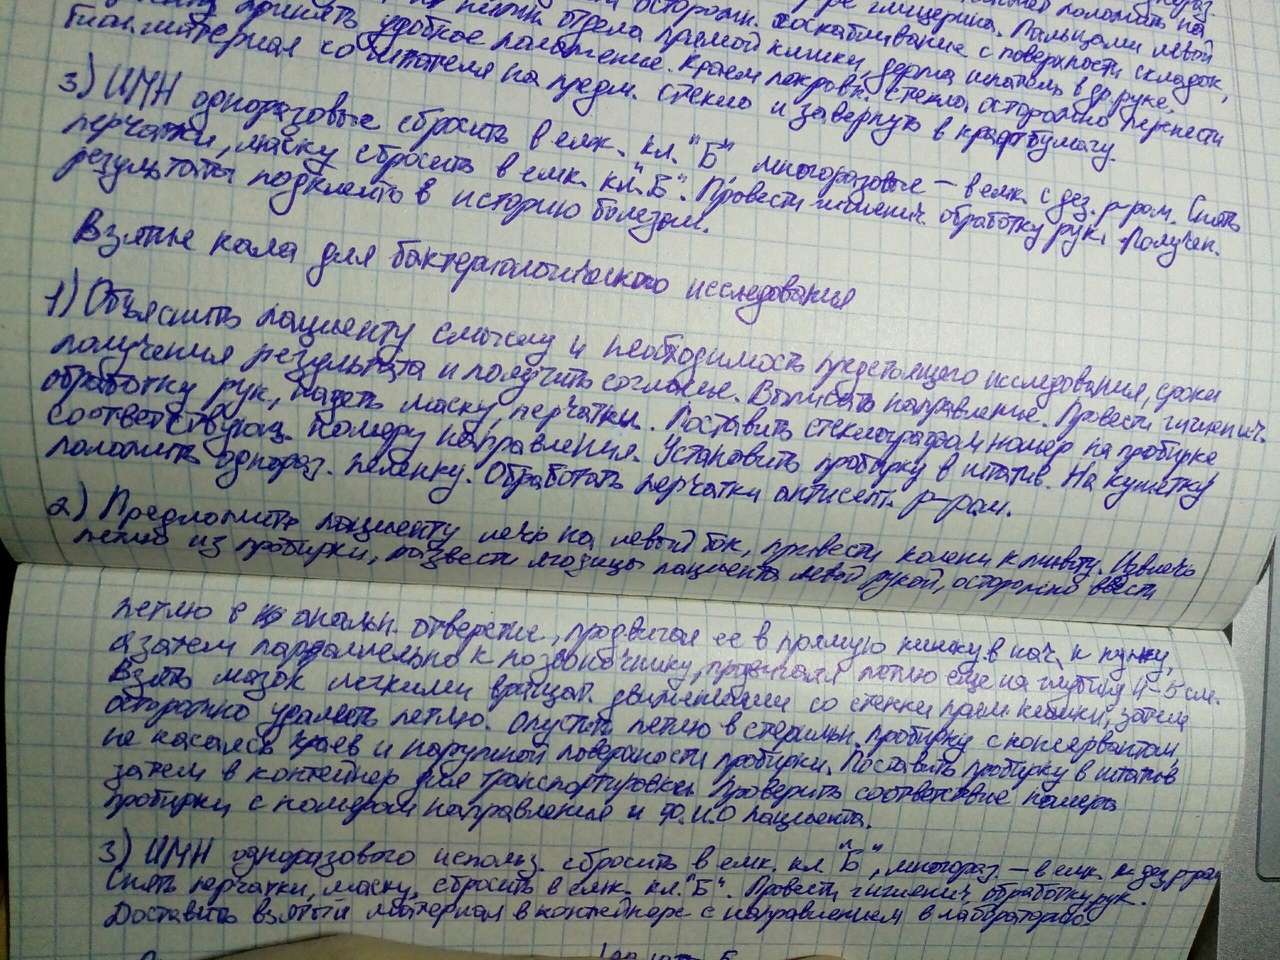 отдела прямой кишки, осторожн. соскабливание с поверхности складок,
принять удобное положение. Краем покровн. стекла осторожно перенести
биол. материал со шпателя на предм. стекло и завернуть в крафтбумагу.
3) ИМН одноразовые сбросить в емк. кл. "Б", многоразовые – в емк. с дез. р-ром. Снять
перчатки, маску сбросить в емк. кл. "Б". Провести гигиенич. обработку рук. Получен.
результаты подклеить в историю болезни.
Взятие кала для бактериологического исследования
1) Объяснить пациенту смысл и необходимость предстоящего исследования, сроки
получения результата и получить согласие. Выписать направление. Провести гигиенич.
обработку рук, надеть маску, перчатки. Поставить стеклографом номер на пробирке
соответствующ. номеру направления. Установить пробирку в штатив. На кушетку
положить однораз. пеленку. Обработать перчатки антисепт. р-ром.
2) Предложить пациенту лечь на левый бок, привести колени к животу. Извлечь
петлю из пробирки, развести ягодицы пациента левой рукой, осторожно ввести
петлю в анальн. отверстие, продвигая ее в прямую кишку в нач. к пупку,
а затем параллельно к позвоночнику, продвигая петлю еще на глубину 4-5 см.
Взять мазок легкими вращат. движениями со стенки прям. кишки, затем
осторожно удалить петлю. Опустить петлю в стерильн. пробирку с консервантом,
не касаясь краев и наружной поверхности пробирки. Поставить пробирку в штатив
затем в контейнер для транспортировки. Проверить соответствие номера
пробирки с номером направления и Ф.И.О пациента.
3) ИМН одноразового использ. сбросить в емк. кл "Б", многораз. – в емк. дез. р-ра
Снять перчатки, маску, сбросить в емк. кл. "Б". Провести гигиенич. обработку рук.
Доставить взятый материал в контейнере с направлением в лабораторию.